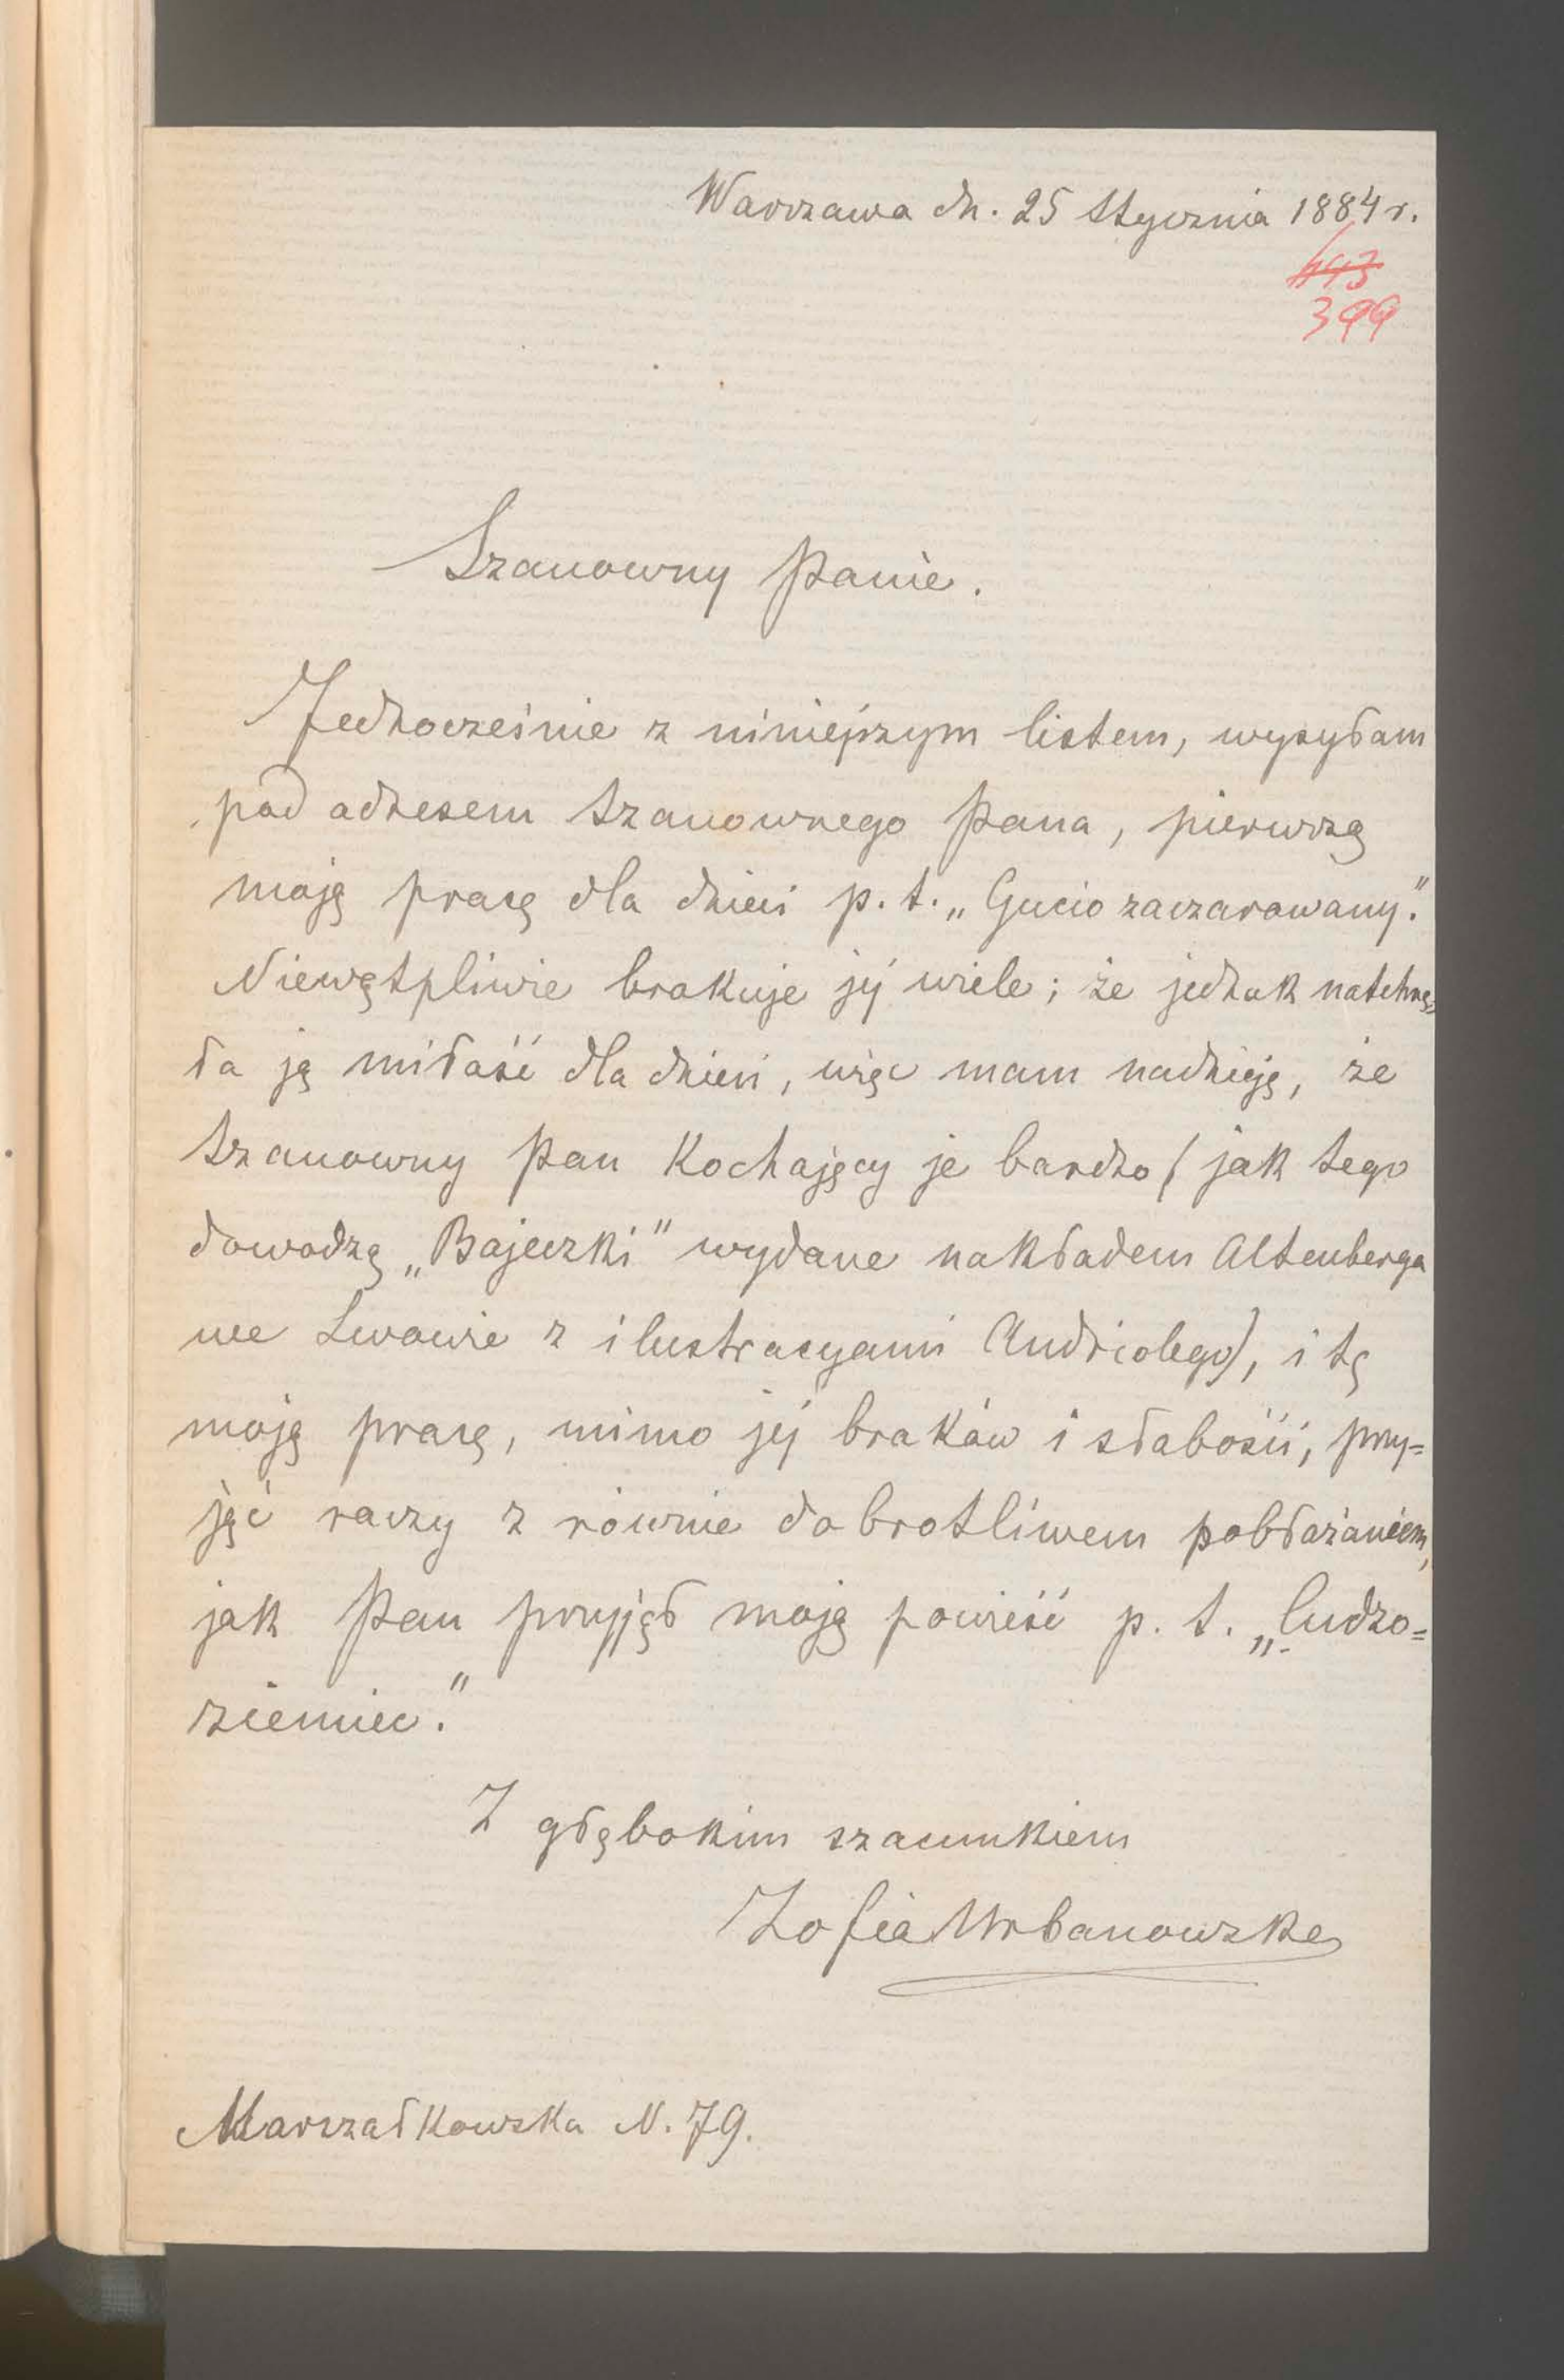 Warszawa dn. 25 Stycznia 1884 r.
443
399
Szanowny Panie.
Jednocześnie z niniejszym listem, wysyłam
pod adresem Szanownego Pana, pierwszą
moją pracę dla dzieci p. t. „Gucio zaczarowany."
Niewątpliwie brakuje jéj wiele; że jednak natchnę-
ła ją miłość dla dzieci, więc mam nadzieję, że
Szanowny Pan kochający je bardzo (jak tego
dowodzą „Bajeczki" wydane nakładem Altenberga
we Lwowie z ilustracyami Andriolego), i tę
moją pracę, mimo jéj braków i słabości, przy=
jąć raczy z równie dobrotliwem pobłażaniem,
jak Pan przyjął moją powieść p. t. „Cudzo=
ziemiec."
Z głębokim szacunkiem
Zofia Urbanowska
Marszałkowska N. 79.